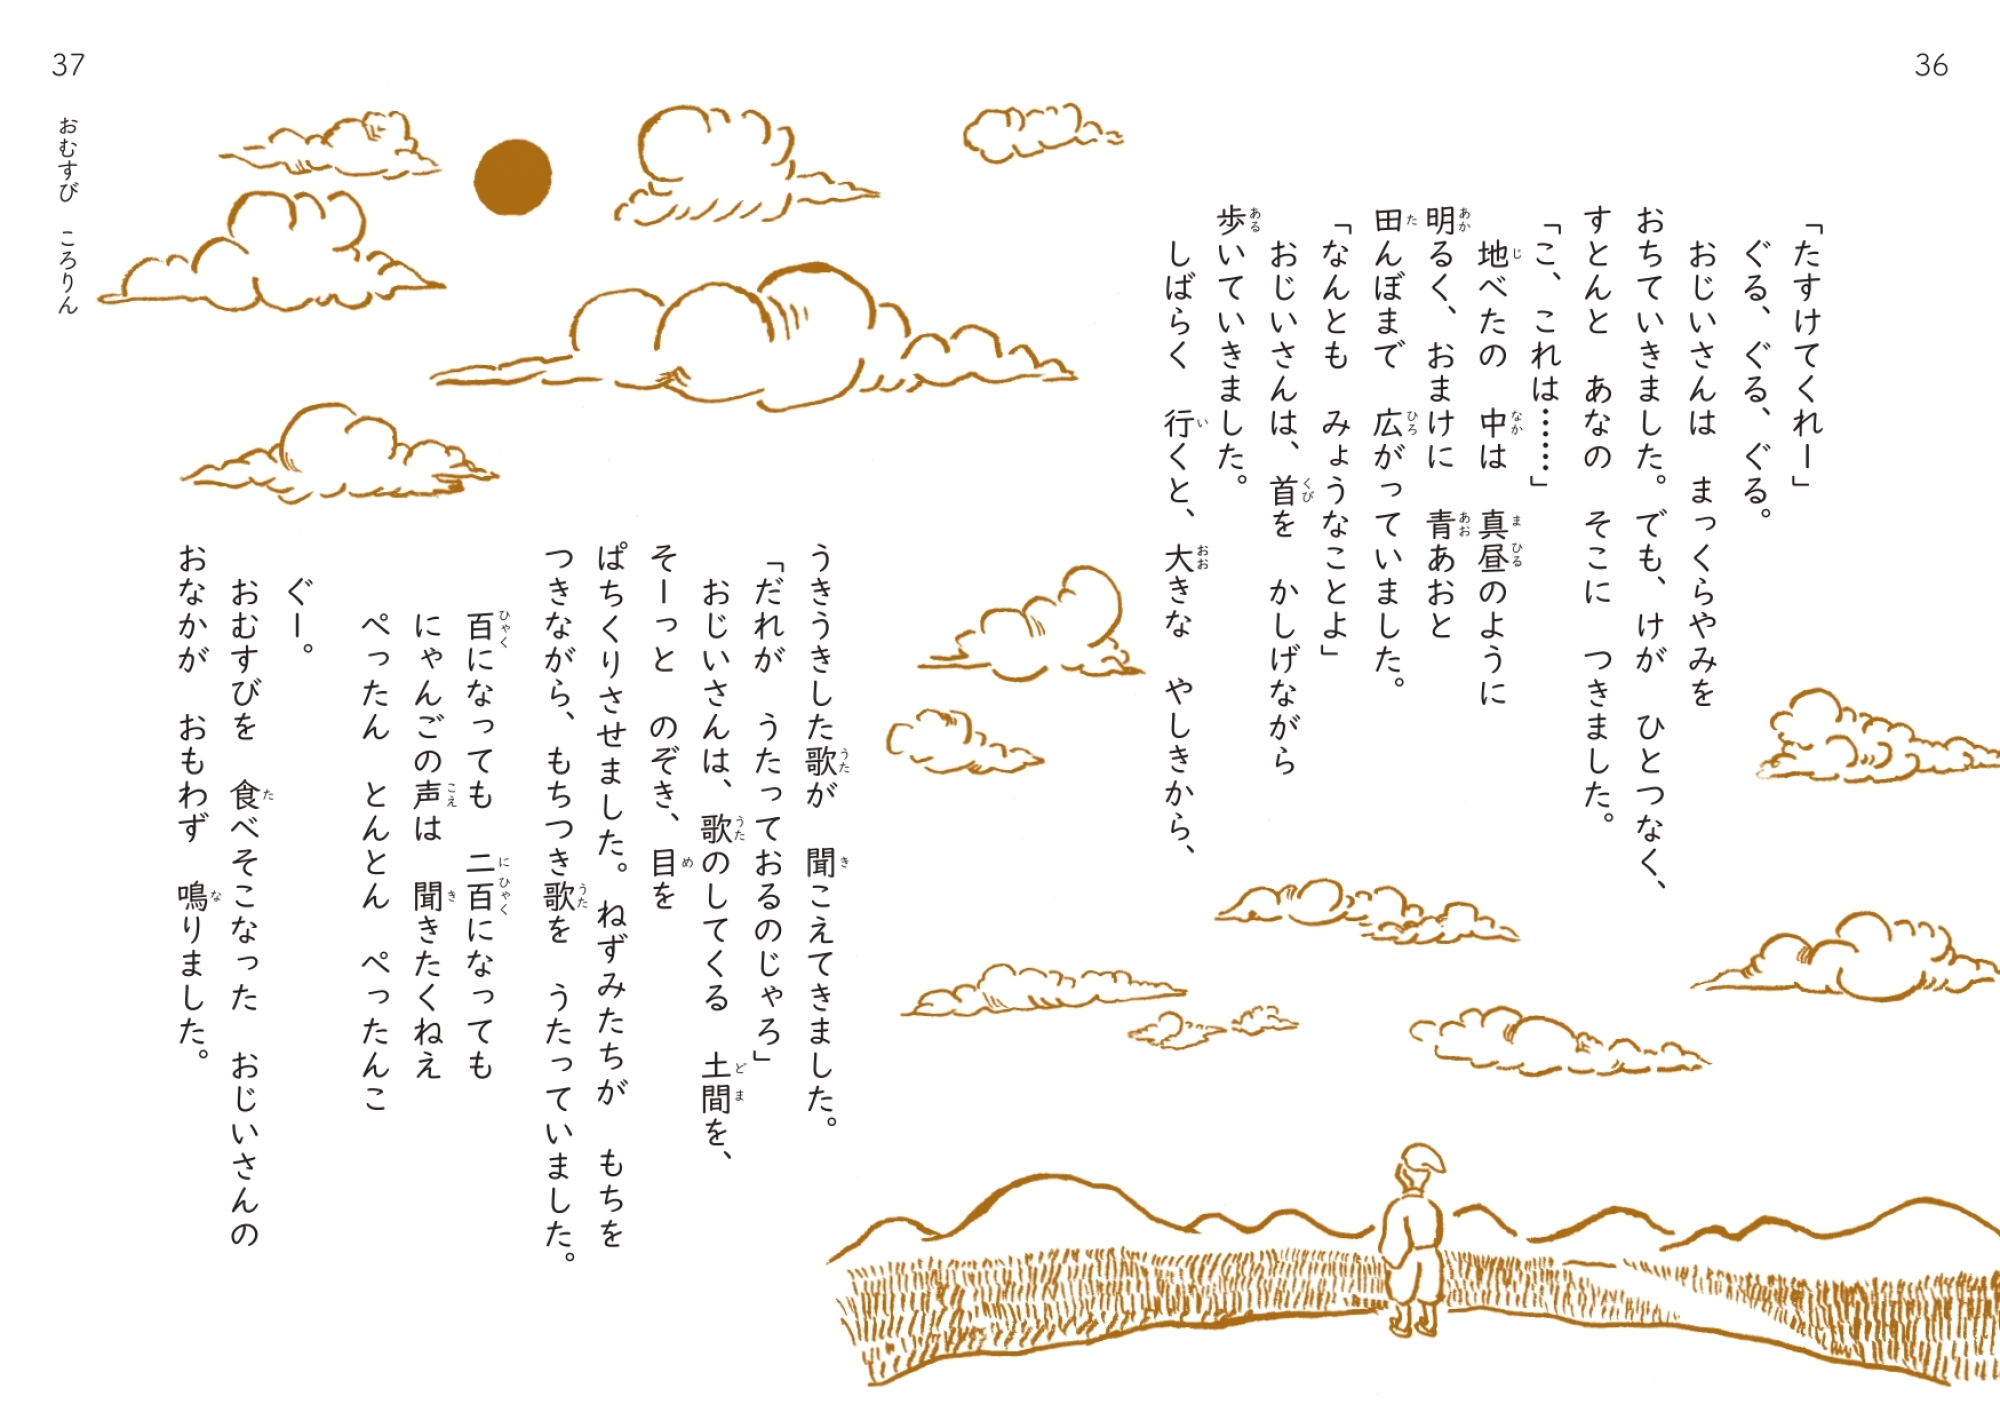 36
「たすけてくれー」
ぐる、ぐる、ぐる、ぐる。
おじいさんは　まっくらやみを
おちていきました。でも、けが　ひとつなく、
すとんと　あなの　そこに　つきました。
「こ、これは……」
地べたの　中は　真昼のように
明るく、おまけに　青あおと
田んぼまで　広がっていました。
「なんとも　みょうなことよ」
おじいさんは、首を　かしげながら
歩いていきました。
しばらく　行くと、大きな　やしきから、
うきうきした歌が　聞こえてきました。
「だれが　うたっておるのじゃろ」
おじいさんは、歌のしてくる　土間を、
そーっと　のぞき、目を
ぱちくりさせました。ねずみたちが　もちを
つきながら、もちつき歌を　うたっていました。
百になっても　二百になっても
にゃんごの声は　聞きたくねえ
ぺったん　とんとん　ぺったんこ
ぐー。
おむすびを　食べそこなった　おじいさんの
おなかが　おもわず　鳴りました。
37
おむすび　ころりん